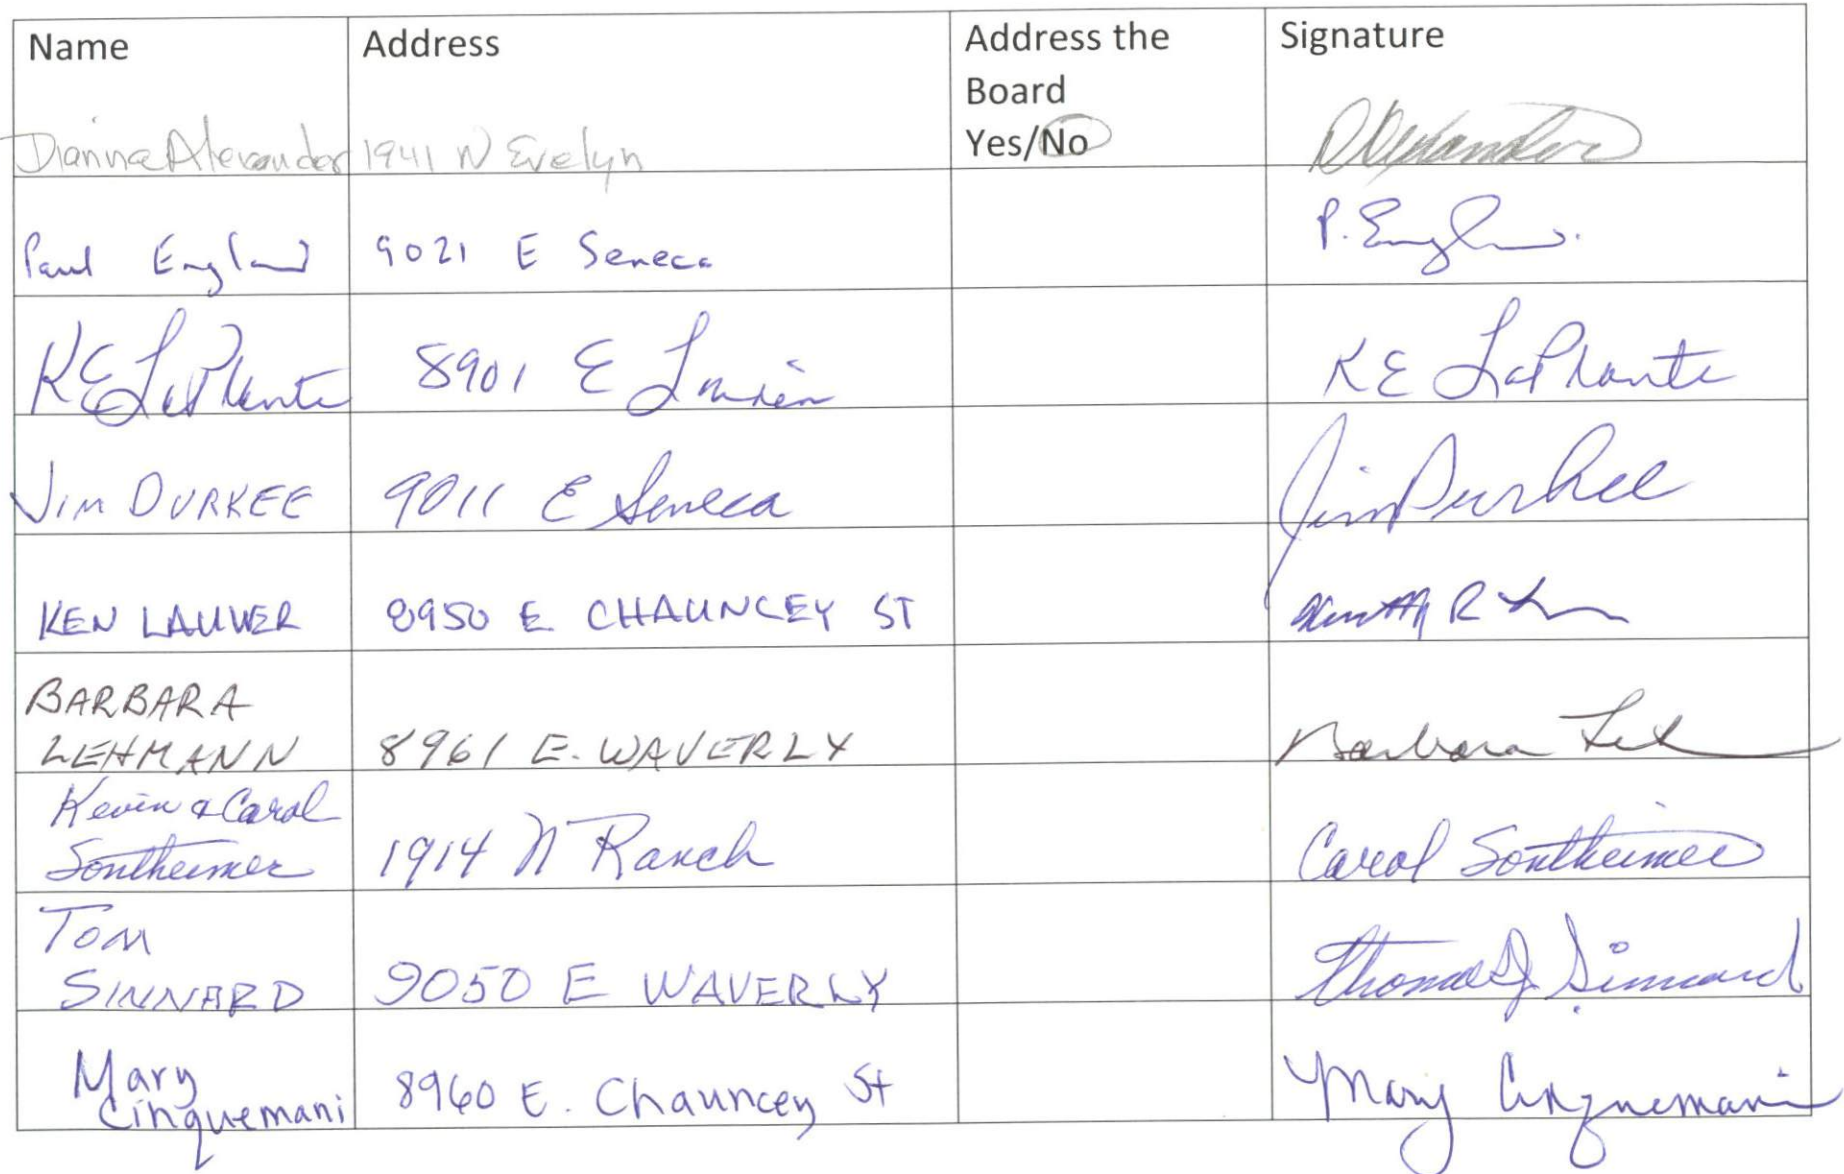 Name Address Address the Signature
Board
Yes/No
Dianna Alexander 1941 N Evelyn DAlexander
Paul England 9021 E Seneca P. England
KE LaPlante 8901 E KE LaPlante
JIM DURKEE 9011 E Seneca Jim Durkee
KEN LAUWER 8950 E CHAUNCEY ST R
BARBARA
LEHMANN 8961 E. WAVERLY Barbara
Kevin & Carol
Sontheimer 1914 N Ranch Carol Sontheimer
TOM
SINNARD 9050 E WAVERLY Thomas J. Sinnard
Mary
Cinquemani 8960 E. Chauncey St Mary Cinquemani